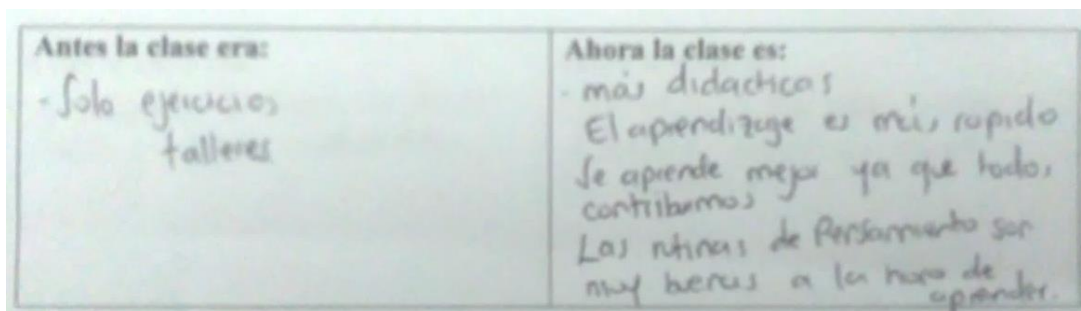 Antes la clase era:
- Solo ejercicios
talleres
Ahora la clase es:
- más didacticas
El aprendizage es más rapido
Se aprende mejor ya que todos
contribumos
Las rutinas de Pensamiento son
muy buenas a la hora de
aprender.